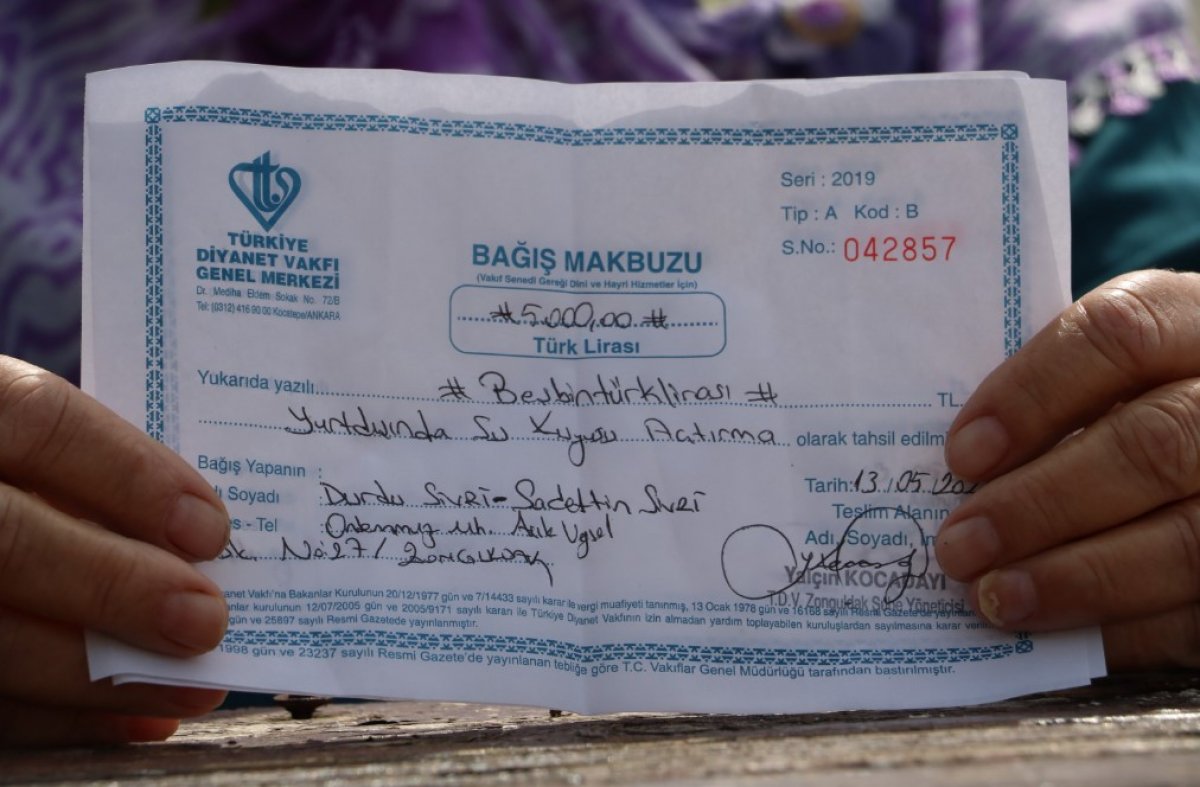 TÜRKİYE
DİYANET VAKFI
GENEL MERKEZİ
Dr. Mediha Eldem Sokak No. 72/B
Tel: (0312) 416 90 00 Kocatepe/ANKARA
Seri : 2019
Tip : A Kod : B
S.No.: 042857
BAĞIŞ MAKBUZU
(Vakıf Senedi Gereği Dini ve Hayri Hizmetler İçin)
# 5.000,00 #
Türk Lirası
Yukarıda yazılı # Beşbintürklirası # TL.
Yurtdışında Su Kuyusu Açtırma olarak tahsil edilmi
Bağış Yapanın :
ı Soyadı : Durdu Sivri - Sadettin Sivri
es - Tel : Ontemmuz mh. Aşık Uysal
sk. No: 27 / ZONGULDAK
Tarih: 13.05.20
Teslim Alanın
Adı, Soyadı, İm
Yalçın KOCABAYI
T.D.V. Zonguldak Şube Yöneticisi
anet Vakfı'na Bakanlar Kurulunun 20/12/1977 gün ve 7/14433 sayılı karar ile vergi muafiyeti tanınmış, 13 Ocak 1978 gün ve 16168 sayılı Resmi Gazetede yayınlan
anlar kurulunun 12/07/2005 gün ve 2005/9171 sayılı kararı ile Türkiye Diyanet Vakfının izin almadan yardım toplayabilen kuruluşlardan sayılmasına karar veril
gün ve 25897 sayılı Resmi Gazetede yayınlanmıştır.
1998 gün ve 23237 sayılı Resmi Gazete'de yayınlanan tebliğe göre T.C. Vakıflar Genel Müdürlüğü tarafından bastırılmıştır.